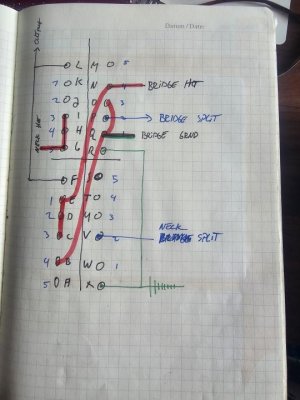 Datum / Date:
OUTPUT
L M 5
1 K N 4 BRIDGE HOT
2 J O 3
3 I P 2 BRIDGE SPLIT
4 H Q 1 BRIDGE GRND
5 G R
NECK HOT
F S 5
1 E T 4
2 D U 3
NECK
3 C V 2 SPLIT
4 B W 1
5 A X